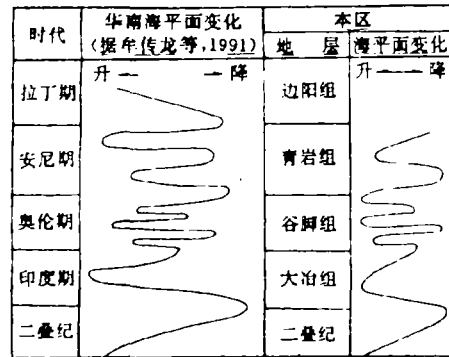 时代 华南海平面变化 本区
(据牟传龙等,1991) 地 层 海平面变化
升 降 升 降
拉丁期 边阳组
安尼期 青岩组
奥伦期 谷脚组
印度期 大冶组
二叠纪 二叠纪